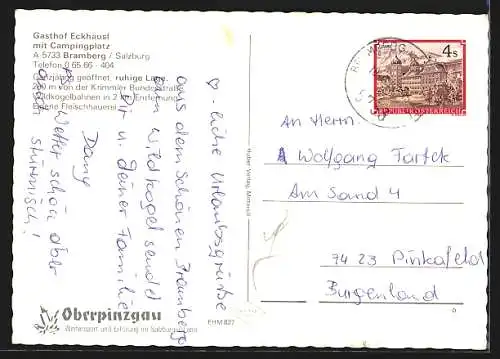 Gasthof Eckhäusl
mit Campingplatz
A 5733 Bramberg / Salzburg
Telefon 0 65 66 - 404
geöffnet, ruhige
m von der Krimmler Bundesstraße
Wildkogelbahnen in 2 km Entfernung
Eigene Fleischhauerei
♡-liche Urlaubsgrüße
aus dem Schönen Bramberg
am Wildkogel sendet
Dir u. Deiner Familie
Dany
PS Wetter schön aber
stürmisch!
Oberpinzgau
Wintersport und Erholung im Salzburger
EHM 827
4s
REPUBLIK ÖSTERREICH
An Herrn
Wolfgang
Am Sand 4
7423 Pinkafeld
Burgenland